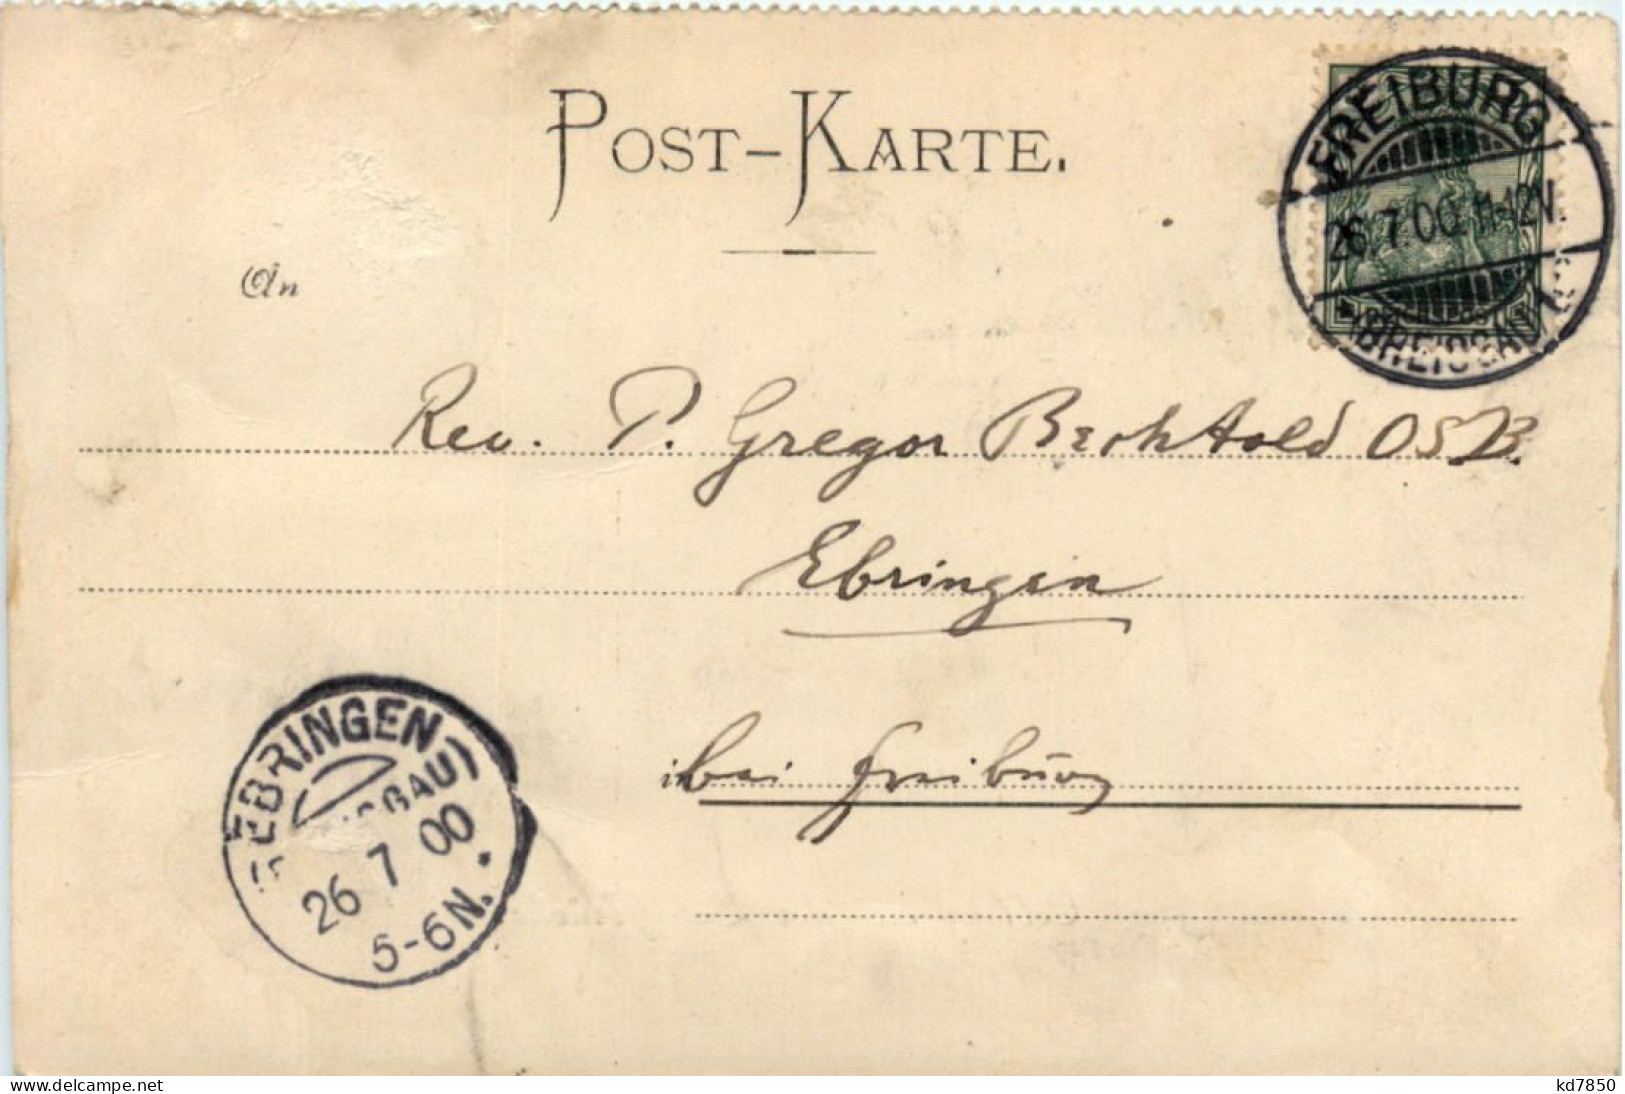 POST-KARTE.
FREIBURG
26.7.00.11-12V.
(BREISGAU)
An
Rev. P. Gregor Berhtold OSB.
Ebringen
bei Freiburg
EBRINGEN
26 7 00
5-6N.
delcampe.net
kd7850